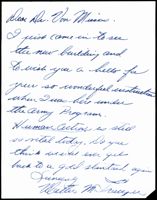 Dear Dr. Von Mises:
I just came in to see
the new building and
to wish you a hello for
your so wonderful instruction
when I was here under
the Army Program.
Human Action is still
so vital today. Do you
think we will ever get
back to a gold standard again
Sincerely
Walter M.